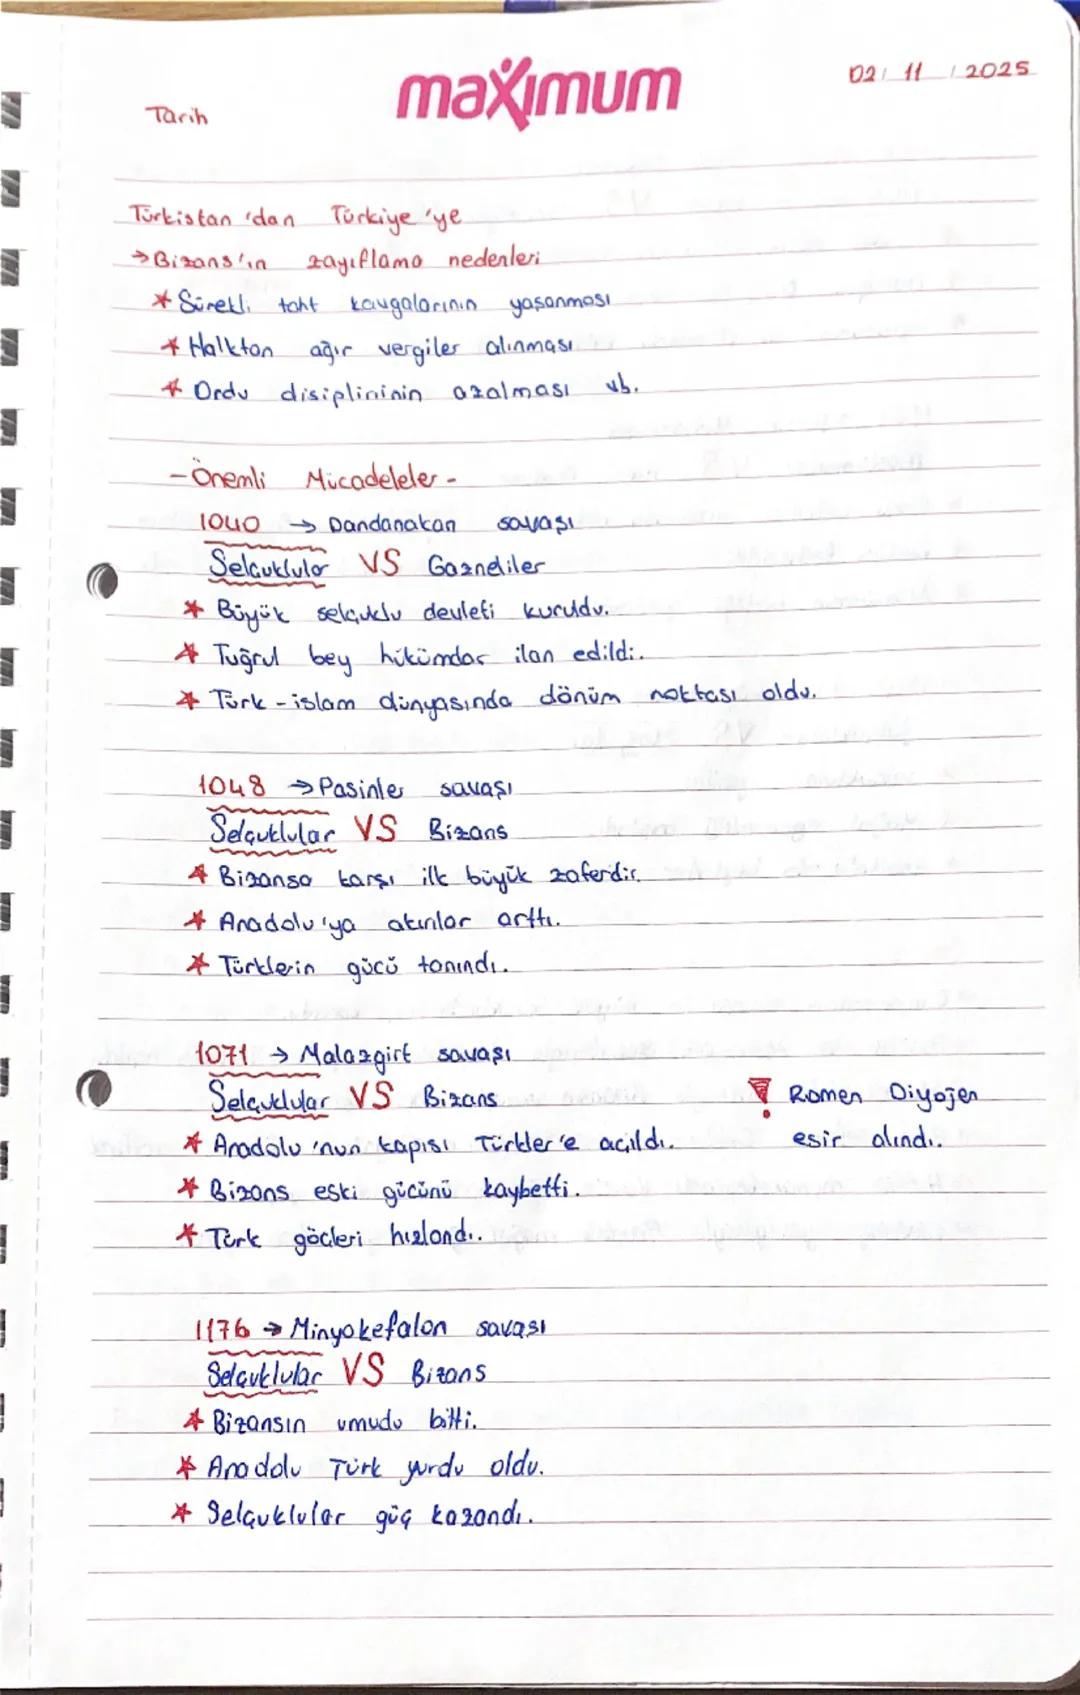 maximum
02 / 11 / 2025
Tarih
Türkistan 'dan Türkiye 'ye
→ Bizans'ın zayıflama nedenleri
* Sürekli taht kavgalarının yaşanması
* Halktan ağır vergiler alınması
* Ordu disiplininin azalması vb.
- Önemli Mücadeleler -
1040 → Dandanakan savaşı
Selçuklular VS Gazneliler
* Büyük selçuklu devleti kuruldu.
* Tuğrul bey hükümdar ilan edildi.
* Türk - islam dünyasında dönüm noktası oldu.
1048 → Pasinler savaşı
Selçuklular VS Bizans
* Bizansa karşı ilk büyük zaferdir.
* Anadolu 'ya akınlar arttı.
* Türklerin gücü tanındı.
1071 → Malazgirt savaşı
Selçuklular VS Bizans
! Romen Diyojen
* Anadolu 'nun kapısı Türkler'e açıldı.
esir alındı.
* Bizans eski gücünü kaybetti.
* Türk göçleri hızlandı.
1176 → Minyokefalon savaşı
Selçuklular VS Bizans
* Bizansın umudu bitti.
* Anadolu Türk yurdu oldu.
* Selçuklular güç kazandı.